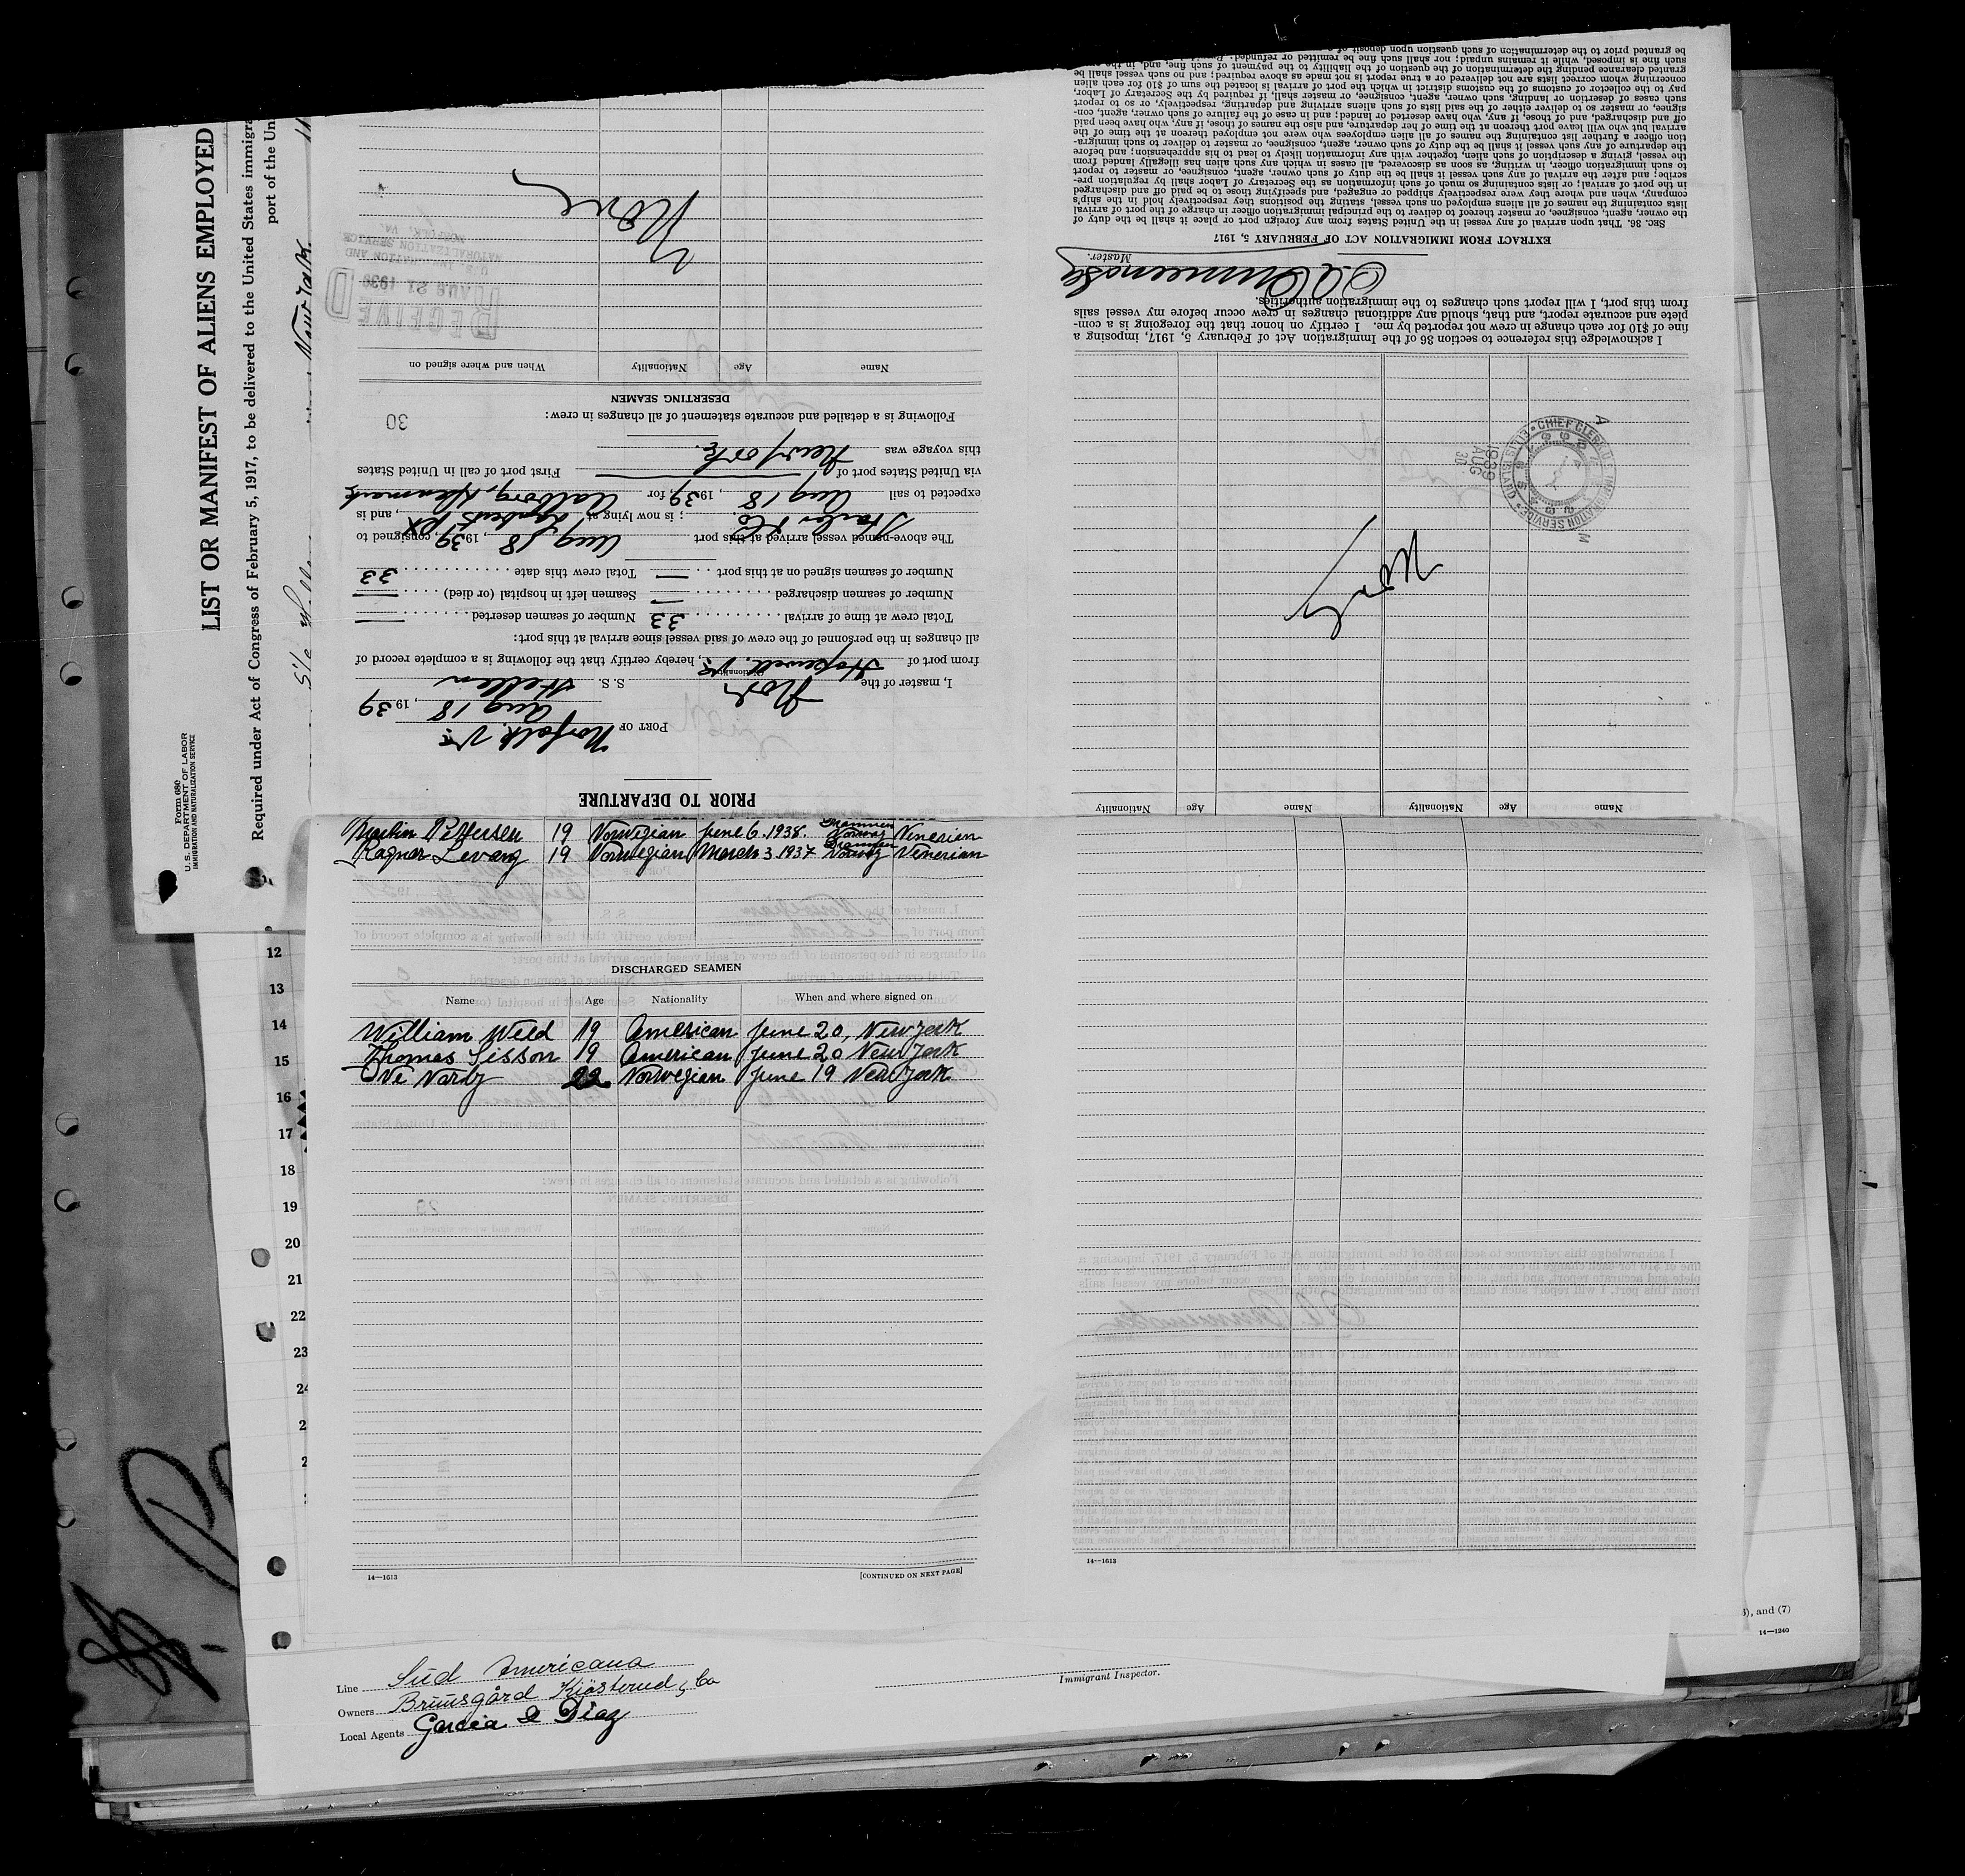 Form 680
U. S. DEPARTMENT OF LABOR
IMMIGRATION AND NATURALIZATION SERVICE
LIST OR MANIFEST OF ALIENS EMPLOYED
Required under Act of Congress of February 5, 1917, to be delivered to the United States immigra
port of the Un
New York
PRIOR TO DEPARTURE
PORT OF Norfolk Va.
Aug 18, 1939
I, master of the Nor. S. S. Hellen
(Nationality)
from port of Hopewell, Va., hereby certify that the following is a complete record of
all changes in the personnel of the crew of said vessel since arrival at this port:
Total crew at time of arrival 33 Number of seamen deserted —
Number of seamen discharged — Seamen left in hospital (or died) —
Number of seamen signed on at this port — Total crew this date 33
The above-named vessel arrived at this port Aug 18, 1939, consigned to
; is now lying at Lamberts Pt, and is
expected to sail Aug 18, 1939, for Aalborg, Denmark
via United States port of — First port of call in United States
this voyage was New York.
Following is a detailed and accurate statement of all changes in crew:
30
DESERTING SEAMEN
Name Age Nationality When and where signed on
RECEIVED
AUG 21 1939
U.S. IMMIGRATION AND
NATURALIZATION SERVICE
NORFOLK, VA.
None
Name Age Nationality Name Age Nationality
None
CHIEF CLERK U.S. IMMIGRATION SERVICE ELLIS ISLAND
1939
AUG
30
I acknowledge this reference to section 36 of the Immigration Act of February 5, 1917, imposing a
fine of $10 for each change in crew not reported by me. I certify on honor that the foregoing is a com-
plete and accurate report, and that, should any additional changes in crew occur before my vessel sails
from this port, I will report such changes to the immigration authorities.
Master.
EXTRACT FROM IMMIGRATION ACT OF FEBRUARY 5, 1917
SEC. 36. That upon arrival of any vessel in the United States from any foreign port or place it shall be the duty of
the owner, agent, consignee, or master thereof to deliver to the principal immigration officer in charge of the port of arrival
lists containing the names of all aliens employed on such vessel, stating the positions they respectively hold in the ship's
company, when and where they were respectively shipped or engaged, and specifying those to be paid off and discharged
in the port of arrival; or lists containing so much of such information as the Secretary of Labor shall by regulation pre-
scribe; and after the arrival of any such vessel it shall be the duty of such owner, agent, consignee, or master to report
to such immigration officer, in writing, as soon as discovered, all cases in which any such alien has illegally landed from
the vessel, giving a description of such alien, together with any information likely to lead to his apprehension; and before
the departure of any such vessel it shall be the duty of such owner, agent, consignee, or master to deliver to such immigra-
tion officer a further list containing the names of all alien employees who were not employed thereon at the time of the
arrival but who will leave port thereon at the time of her departure, and also the names of those, if any, who have been paid
off and discharged, and of those, if any, who have deserted or landed; and in case of the failure of such owner, agent, con-
signee, or master so to deliver either of the said lists of such aliens arriving and departing, respectively, or so to report
such cases of desertion or landing, such owner, agent, consignee, or master, shall, if required by the Secretary of Labor,
pay to the collector of customs of the customs district in which the port of arrival is located the sum of $10 for each alien
concerning whom correct lists are not delivered or a true report is not made as above required; and no such vessel shall be
granted clearance pending the determination of the question of the liability to the payment of such fine, and, in the
such fine is imposed, while it remains unpaid; nor shall such fine be remitted or refunded:
be granted prior to the determination of such question upon deposit of
Martin Pettersen 19 Norwegian June 6. 1938. Drammen Norway Venerian
Ragnar Levang 19 Norwegian March 3 1937 Drammen Norway Venerian
DISCHARGED SEAMEN
Name Age Nationality When and where signed on
William Weld 19 American June 20, New York
Thomas Sisson 19 American June 20 New York
Ove Nordz 22 Norwegian June 19 New York
14—1613
[CONTINUED ON NEXT PAGE]
14—1613
12
13
14
15
16
17
18
19
20
21
22
23
24
2
2
Line Sud Americana
Owners Bruusgård Kiøsterud & Co
Local Agents Garcia & Diaz
Immigrant Inspector.
), and (7)
14—1240